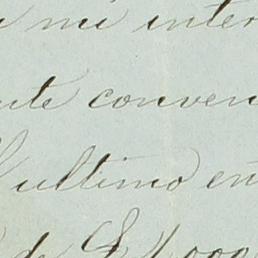 mi inter
ute conven
ultimo en
de $1,000